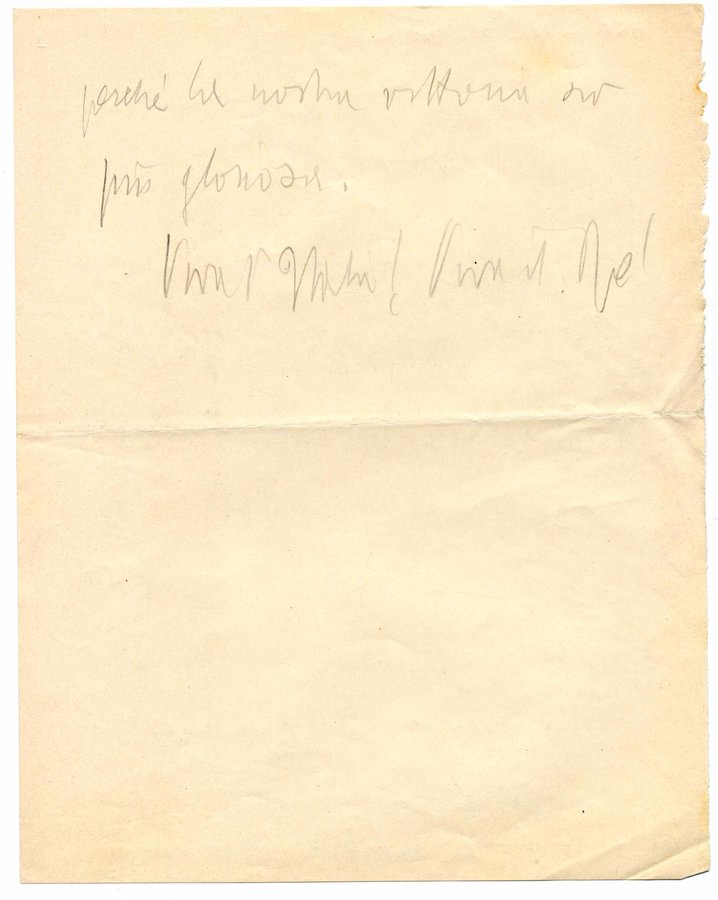 perché la nostra vittoria sia
più gloriosa.
Viva l'Italia! Viva il Re!